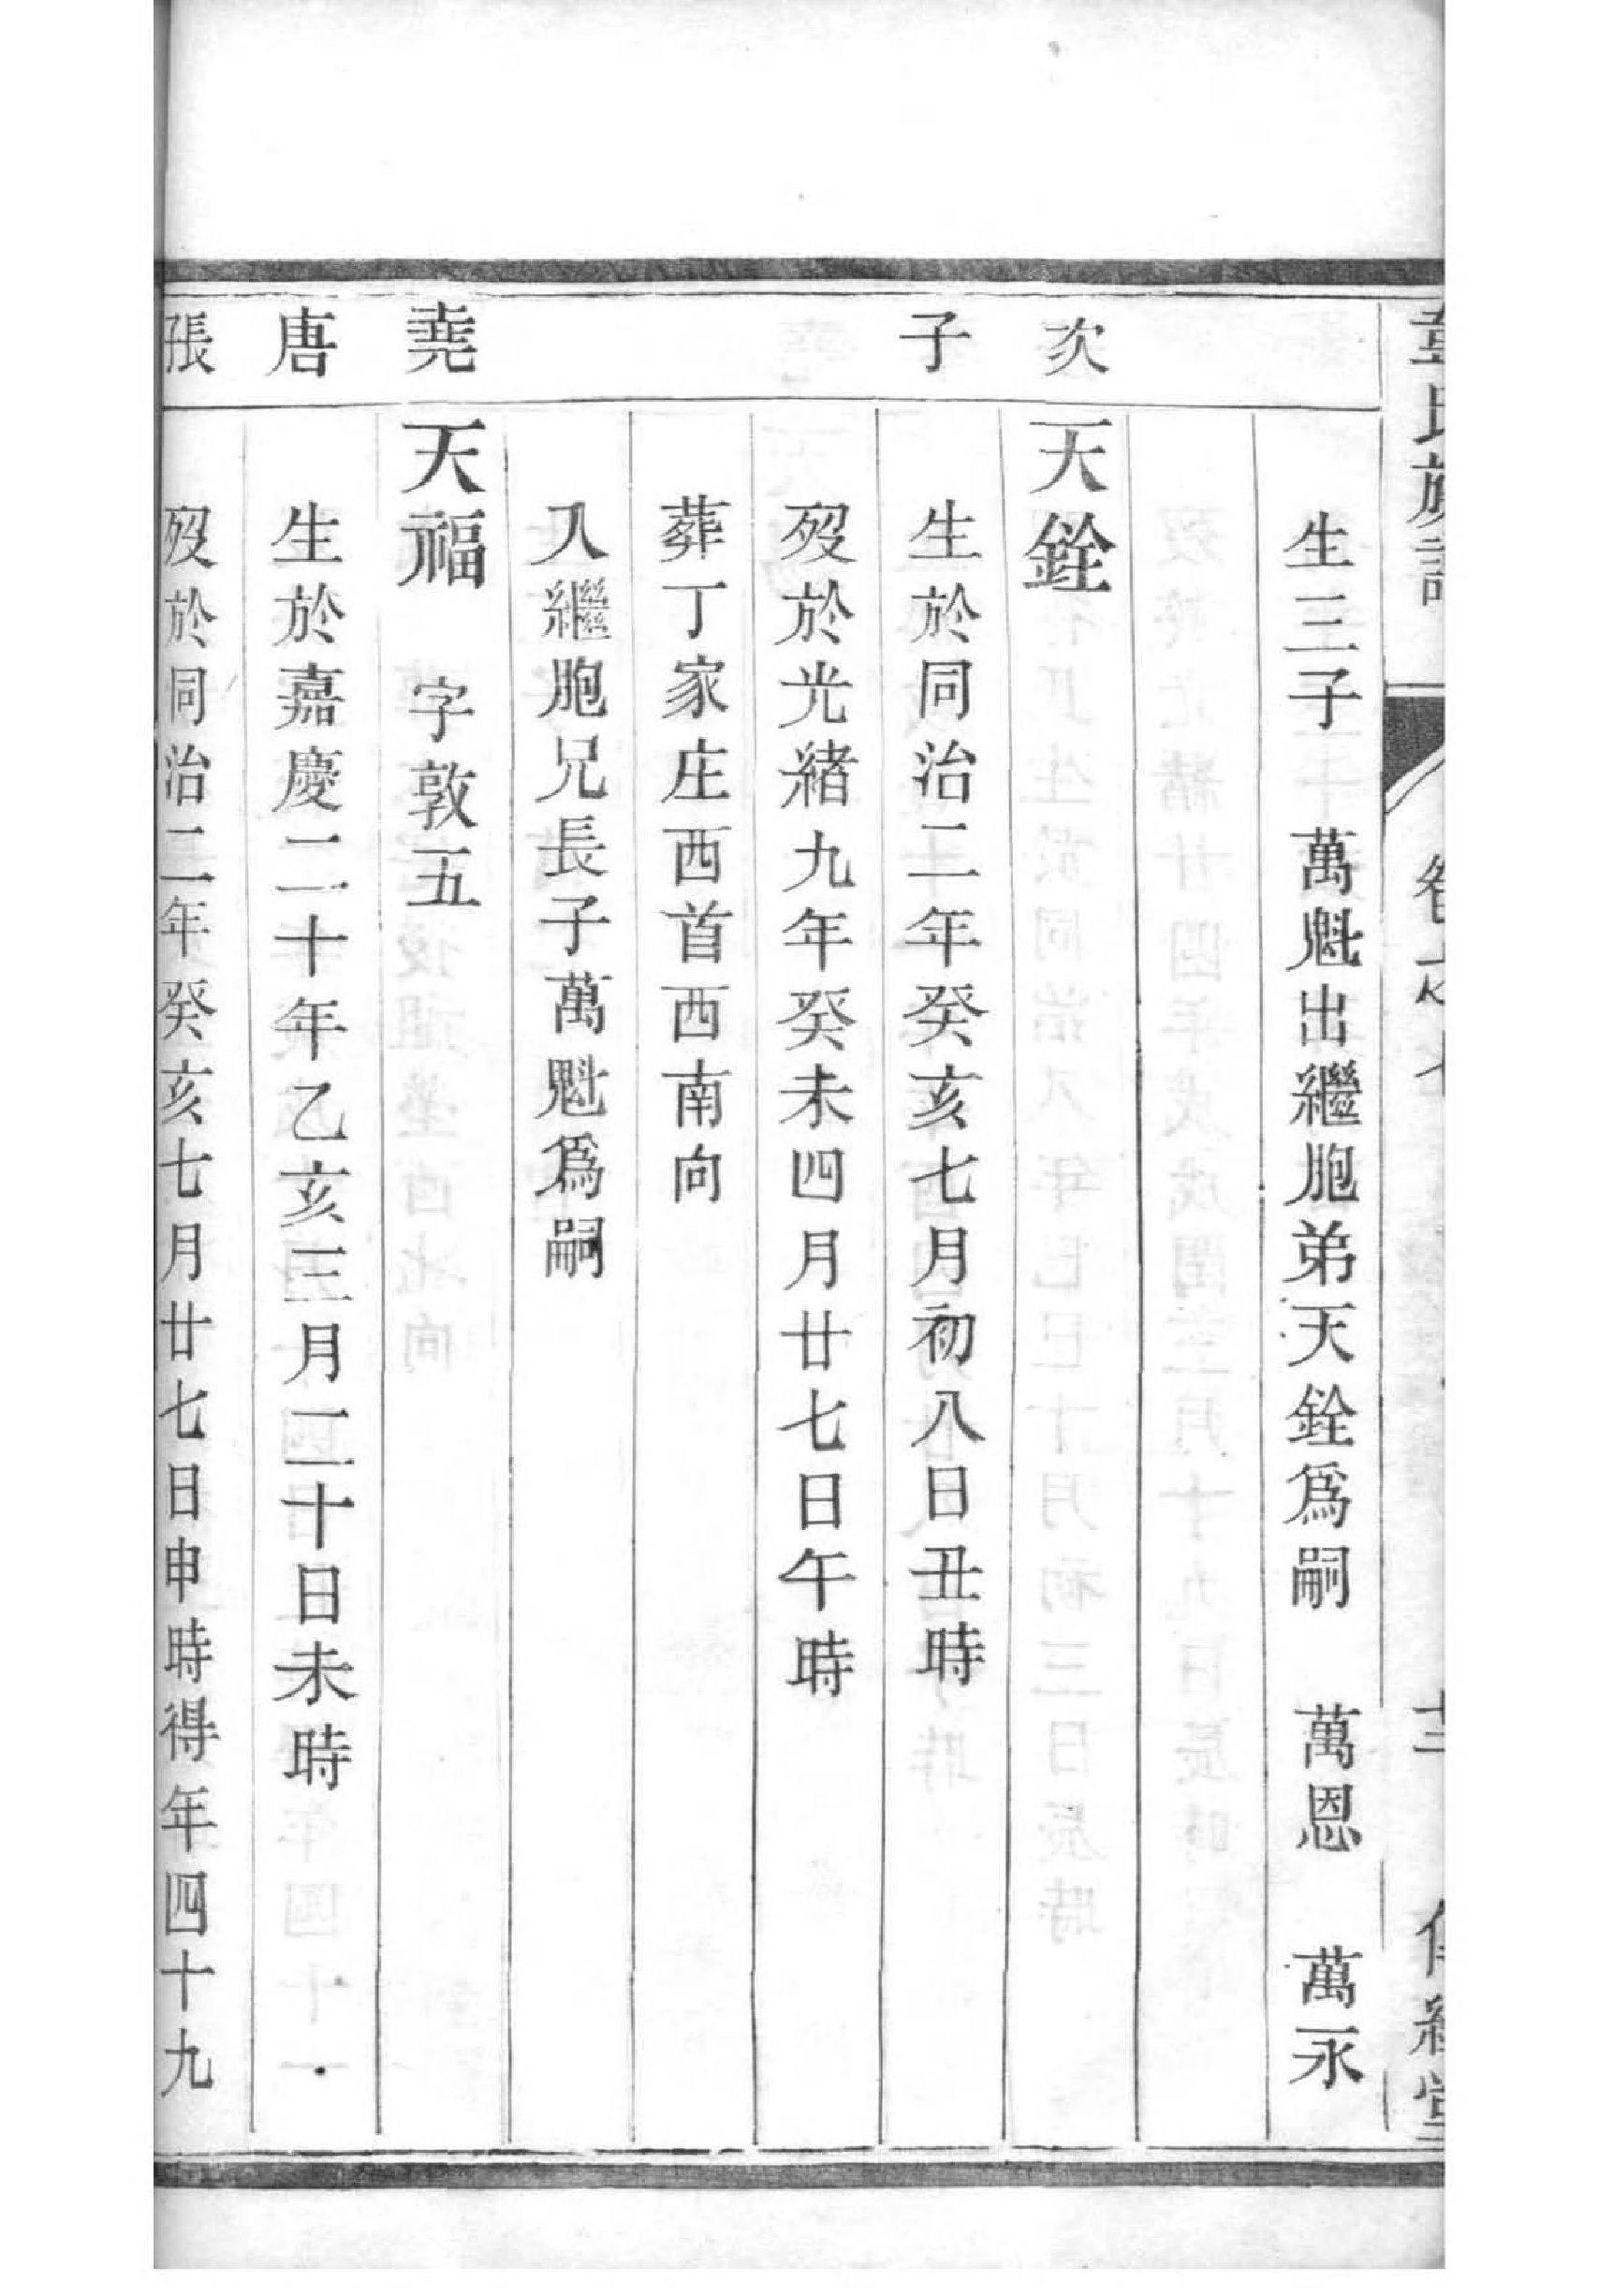 氏族譜
卷之七
十三
傳經堂
生三子 萬魁出繼胞弟天銓爲嗣 萬恩 萬永
次 天銓
生於同治二年癸亥七月初八日丑時
子
歿於光緒九年癸未四月廿七日午時
葬丁家庄西首西南向
入繼胞兄長子萬魁爲嗣
堯 天福 字敦五
唐 生於嘉慶二十年乙亥三月二十日未時
張 歿於同治二年癸亥七月廿七日申時得年四十九